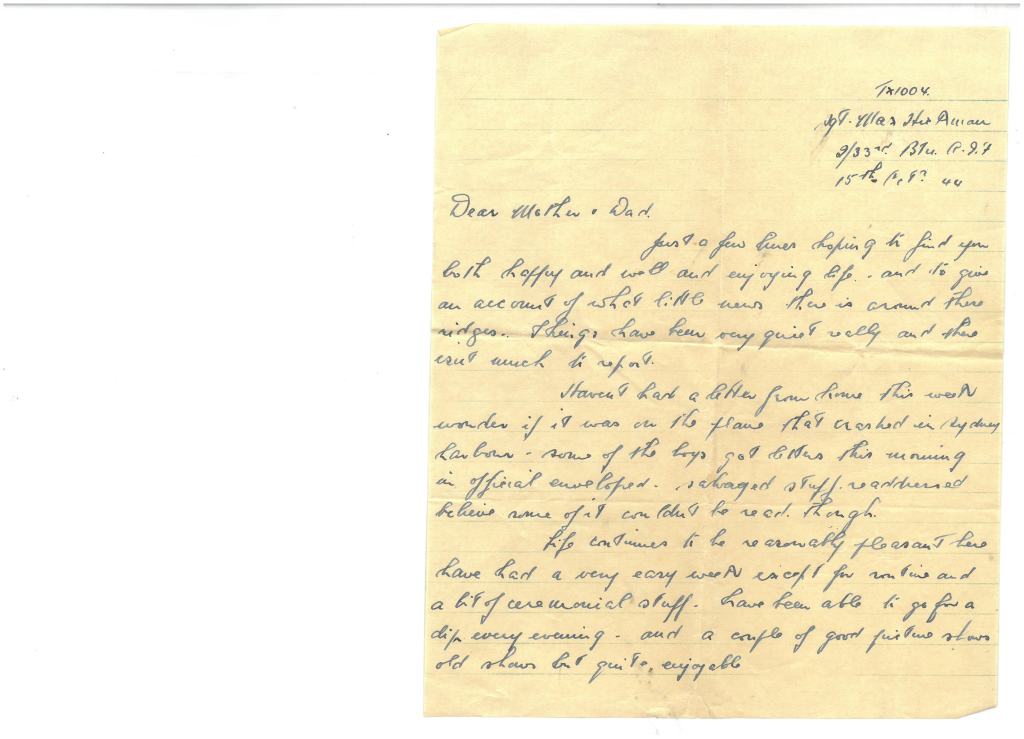 TX1004.
Sgt. Max Hickman
2/33rd. Btn. A.I.F
15th 44
Dear Mother & Dad.
Just a few lines hoping to find you
both happy and well and enjoying life. and to give
an account of what little news there is around these
ridges. Things have been very quiet really and there
isnt much to report.
Haven't had a letter from home this week
wonder if it was on the plane that crashed in Sydney
harbour - some of the boys got letters this morning
in official enveloped. salvaged stuff. readdressed
believe some of it couldn't be read. though.
Life continues to be reasonably pleasant here
have had a very easy week except for routine and
a bit of ceremonial stuff. have been able to go for a
dip every evening - and a couple of good picture shows
old shows but quite enjoyable